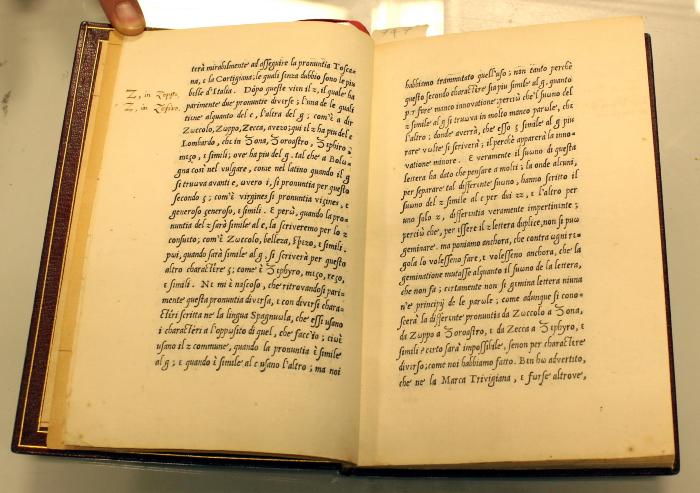 Z, in Zoppo,
Z, in Zefiro.
terà mirabilmente ad asseguire la pronuntia Toscana,
ε la Cortigiana; le quali senza dubbio sono le piu
belle d'Italia. Dopo questε vien il z, il quale ha
parimente due pronuntie diverse; l'una de le quali
tiene alquanto del c, l'altra del g; com'è a dir
Zuccolo, Zuppo, Zecca, avezo; qui il z ha piu del c
Lombardo, che in Ʒona, Ʒoroastro, Ʒephiro;
meʒo, ε simili; ove ha piu del g. tal che a Bologna
così nel vulgare, come nel latino quando il g
si truova avanti e, overo i, si pronuntia per questo
secondo ʒ; com'è virgines si pronuntia virʒines, ε
generoso ʒeneroso, ε simili. E però, quando la pronuntia
del z sarà simile al c, la scriveremo per lo z
consueto; com'è Zuccolo, bellεza, spεzo, ε simili.
poi, quando sarà simile al g, si scriverà per questo
altro charactεre ʒ; come è Ʒεphyro, mεʒo, reʒo,
ε simili. Nε mi ε nascoso, che ritrovandosi parimente
questa pronuntia diversa, ε con diversi charactεri
scritta ne' la lingua Spagnuola, che essi usano
i charactεri a l'opposito di quel, che facc'io; ciωε
usano il z commune, quando la pronuntia ε simile
al g; ε quando ε simile al c usano l'altro; ma noi
habbiamo trammutato quell'uso; non tanto perchè
questo secondo charactεre sia piu simile al g, quanto
per fare manco innovatione; perciò che'l suono del
z simile al g si truova in molto manco parole, che
l'altro; donde averrà, che esso ʒ simile al g piu
rare volte si scriverà; il perchè apparerà la innovatione
minore. E veramente il suono di questa
lettera ha dato che pensare a molti; la onde alcuni,
per separare tal differente suono, hanno scritto il
suono del z simile al c per dui zz, ε l'altro per
uno solo z, differεntia veramente impertinεnte;
perciò che, per εssere il z lettera duplice, non si puω
geminare. ma poniamo anchora, che contra ogni regola
lo volesseno fare, ε volesseno anchora, che la
geminatione mutasse alquanto il suono de la lettera,
che non fa; certamente non si gemina lettera niuna
ne' principij de le parole; come adunque si conoscerà
la differεnte pronuntia da Zuccolo a Ʒona,
da Zuppo a Ʒoroastro, ε da Zecca a Ʒephyro, ε
simili? certo sarà impossibile, senon per charactεre
diverso; come noi habbiamo fatto. Ben hω advertito,
che ne' la Marca Trivigiana, ε forse altrove,